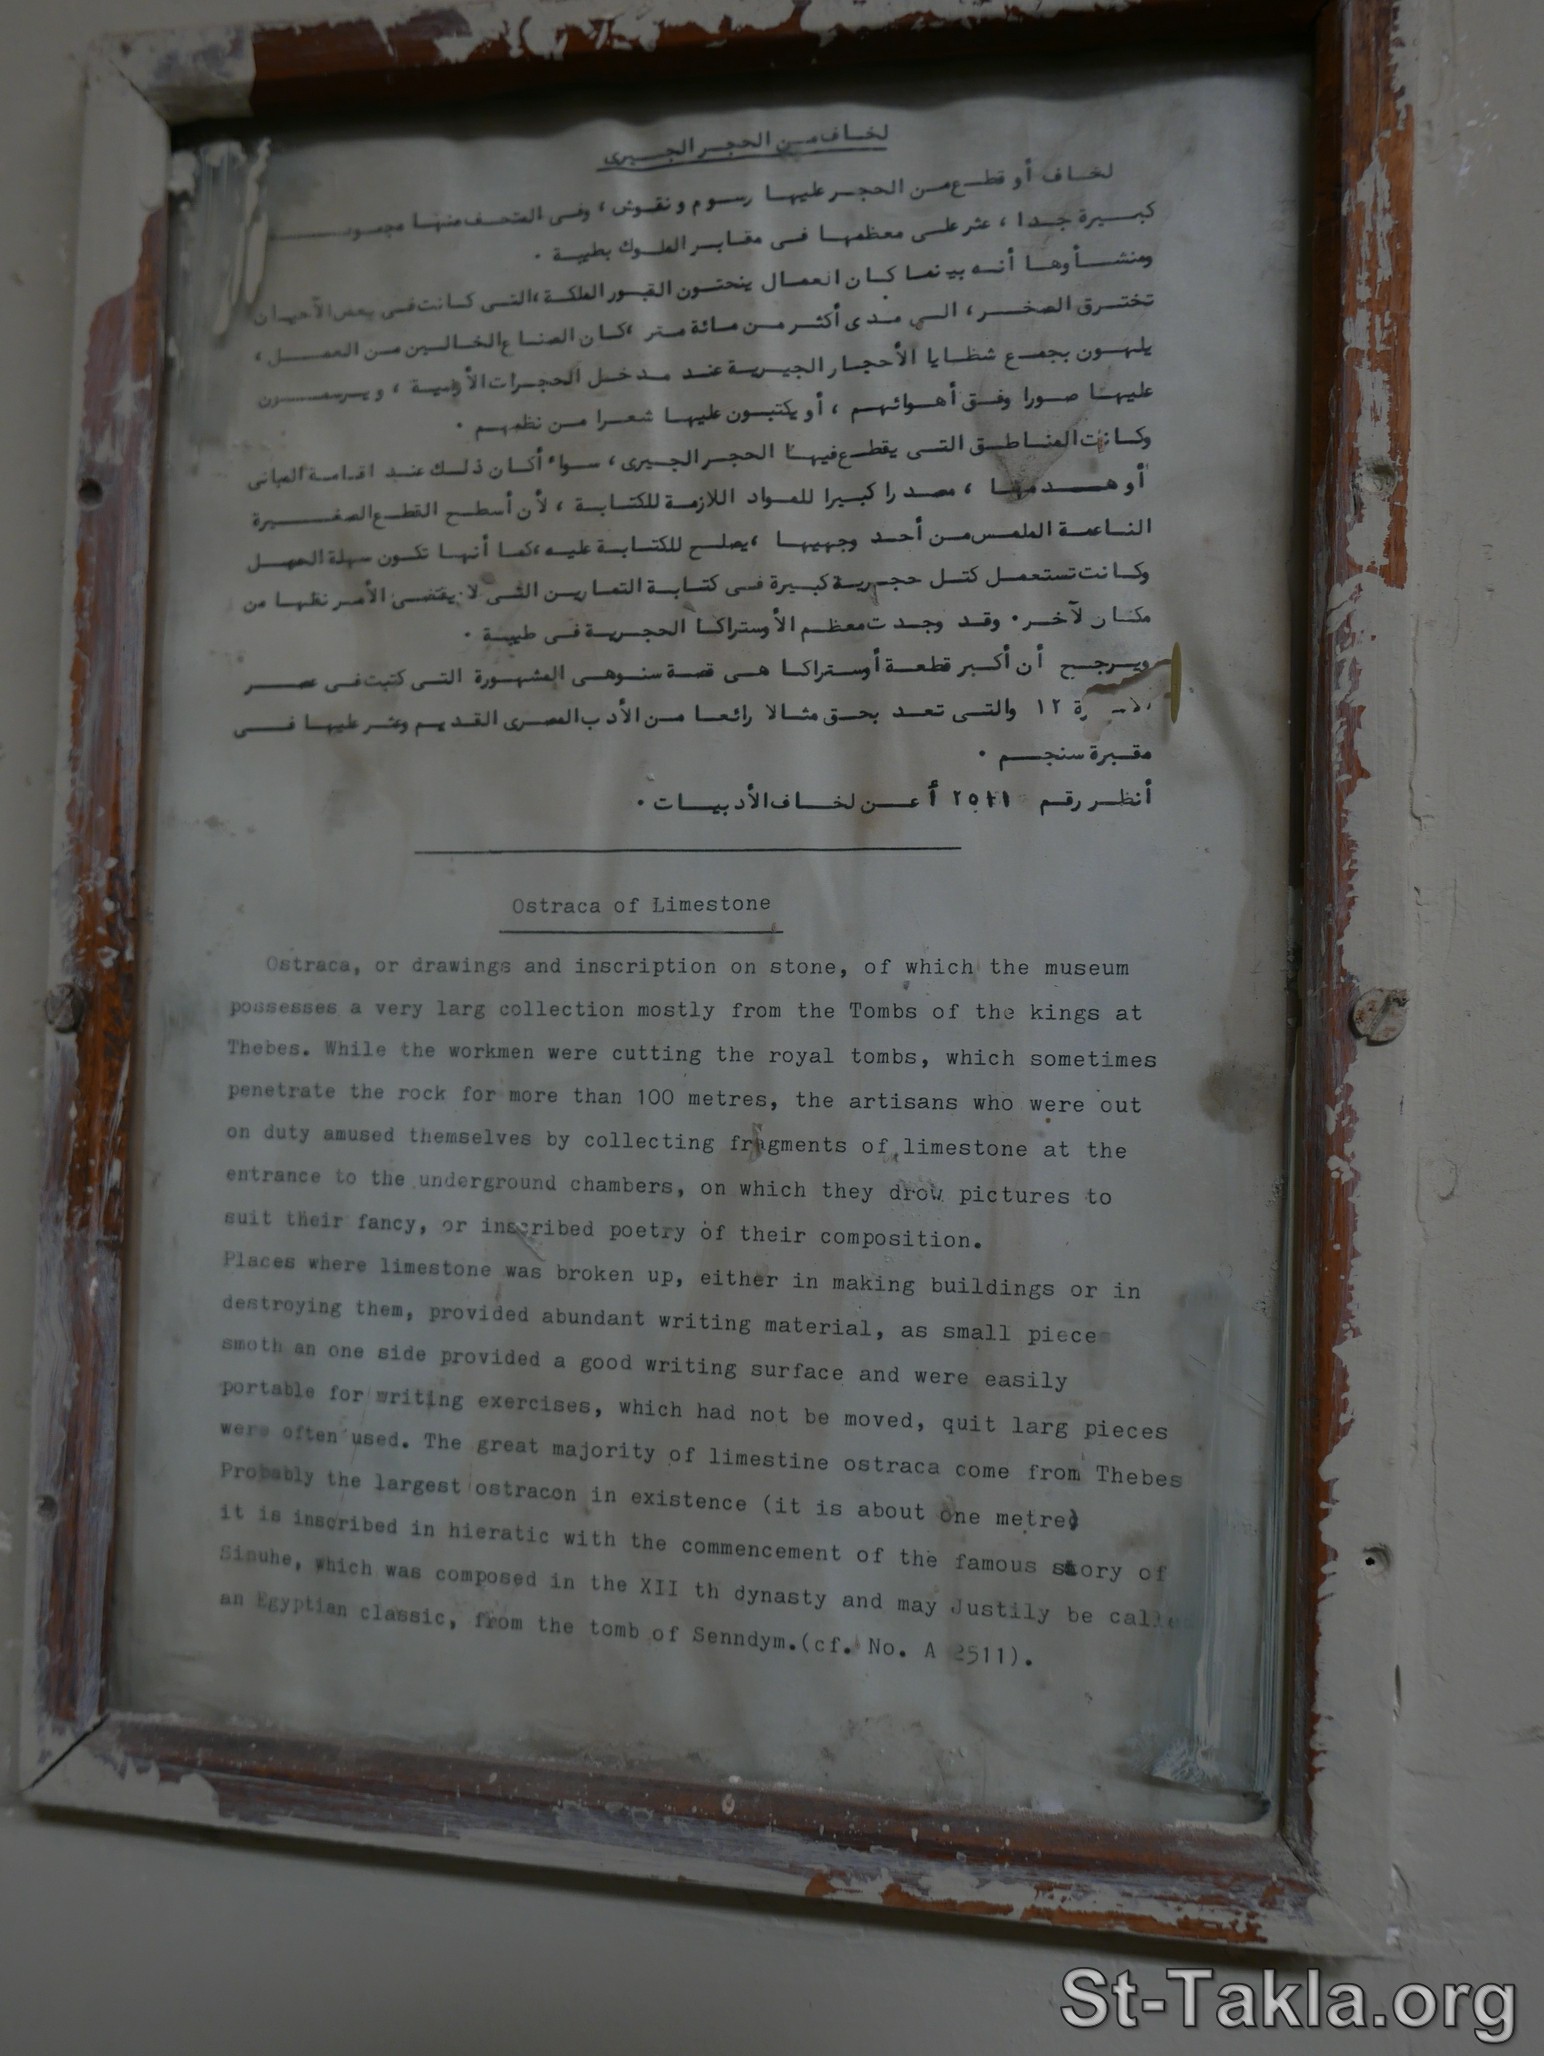 لخاف من الحجر الجيرى
لخاف أو قطع من الحجر عليها رسوم ونقوش ، وفى المتحف منها
كبيرة جدا ، عثر على معظمها فى مقابر الملوك بطيبة .
ومنشأوها أنه بينما كان العمال ينحتون القبور الملكة ، التى كانت فى بعض الأحيان
تخترق الصخر ، الى مدى أكثر من مائة متر ، كان الصناع الخالين من العمل ،
يلهون بجمع شظايا الأحجار الجيرية عند مدخل الحجرات ، ويرسمون
عليها صورا وفق أهوائهم ، أو يكتبون عليها شعرا من نظمهم .
وكانت المناطق التى يقطع فيها الحجر الجيرى ، سواء أكان ذلك عند اقامة المبانى
أو هدمها ، مصدرا كبيرا للمواد اللازمة للكتابة ، لأن أسطح القطع الصغيرة
الناعمة الملمس من أحد وجهيها ، يصلح للكتابة عليه ، كما أنها تكون سهلة الحمل
وكانت تستعمل كتل حجرية كبيرة فى كتابة التمارين التى لا يقتضى الأمر نقلها من
مكان لآخر . وقد وجدت معظم الأوستراكا الحجرية فى طيبة .
ويرجح أن أكبر قطعة أوستراكا هى قصة سنوهى المشهورة التى كتبت فى عصر
١٢ والتى تعد بحق مثالا رائعا من الأدب المصرى القديم وعثر عليها فى
مقبرة سنجم .
أنظر رقم ٢٥١١ أ عن لخاف الأدبيات .
Ostraca of Limestone
Ostraca, or drawings and inscription on stone, of which the museum
possesses a very larg collection mostly from the Tombs of the kings at
Thebes. While the workmen were cutting the royal tombs, which sometimes
penetrate the rock for more than 100 metres, the artisans who were out
on duty amused themselves by collecting fragments of limestone at the
entrance to the underground chambers, on which they drow pictures to
suit their fancy, or inscribed poetry of their composition.
Places where limestone was broken up, either in making buildings or in
destroying them, provided abundant writing material, as small pieces
smoth an one side provided a good writing surface and were easily
portable for writing exercises, which had not be moved, quit larg pieces
were often used. The great majority of limestine ostraca come from Thebes
Probably the largest ostracon in existence (it is about one metre)
it is inscribed in hieratic with the commencement of the famous story of
Sinuhe, which was composed in the XII th dynasty and may Justily be calle
an Egyptian classic, from the tomb of Senndym.(cf. No. A 2511).
St-Takla.org